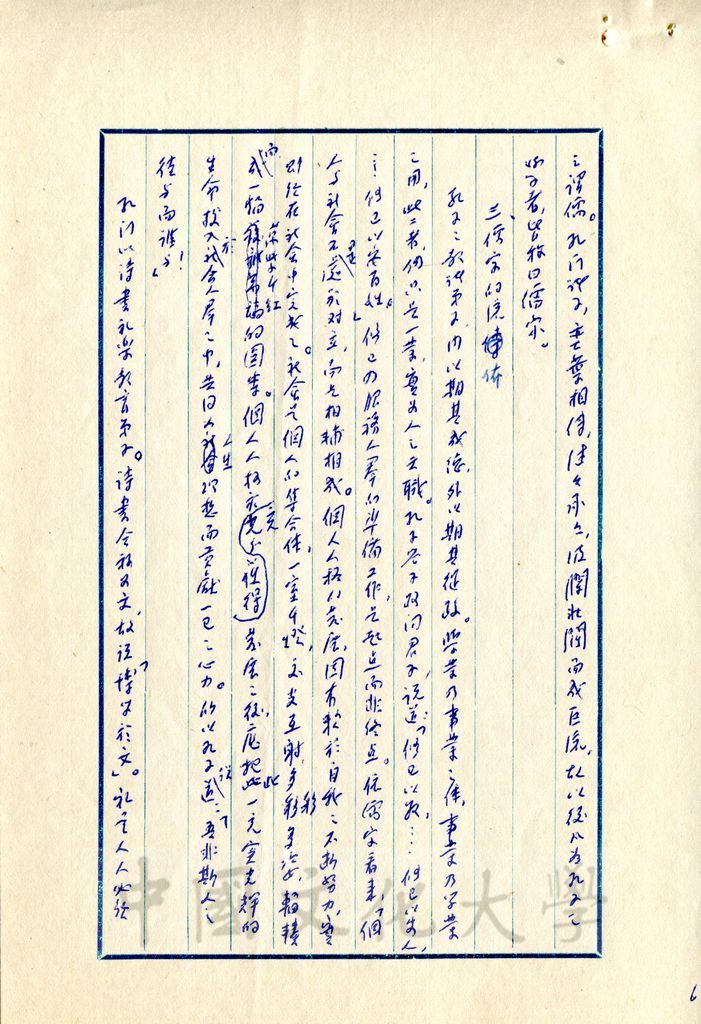 之謂儒。孔門說子，主業相傳，波瀾壯闊而成巨流，故以後凡為孔子之
學者，皆稱曰儒家。
三、儒家的流傳
孔子之教諸弟子，內以期其成德，外以期其從政。學業乃事業之體，事業乃學業
之用，此二者，仍只是一業，實為人之天職。孔子答子路問君子，說道：「修己以敬……修己以安人，
……修己以安百姓。」修己乃服務人羣的準備工作，是起點而非終點。依儒家看來，個
人與社會不是對立，而是相輔相成。個人人格的發展，固有賴於自我之不斷努力，實
則須在社會中完成之。社會是個人的集合體，一室千燈，交光互射，多彩多姿，輻輳
而成一幅萬紫千紅的圖畫。個人人格充分發展之後，應把此一充實光輝的
生命投入於社會人羣之中，共同為人生理想而貢獻一己之心力。所以孔子說：「吾非斯人之
徒與而誰與！」
孔門以詩書禮樂教育弟子。詩書合稱為文，故說「博學於文」。禮是人人必須
中國文化大學
6